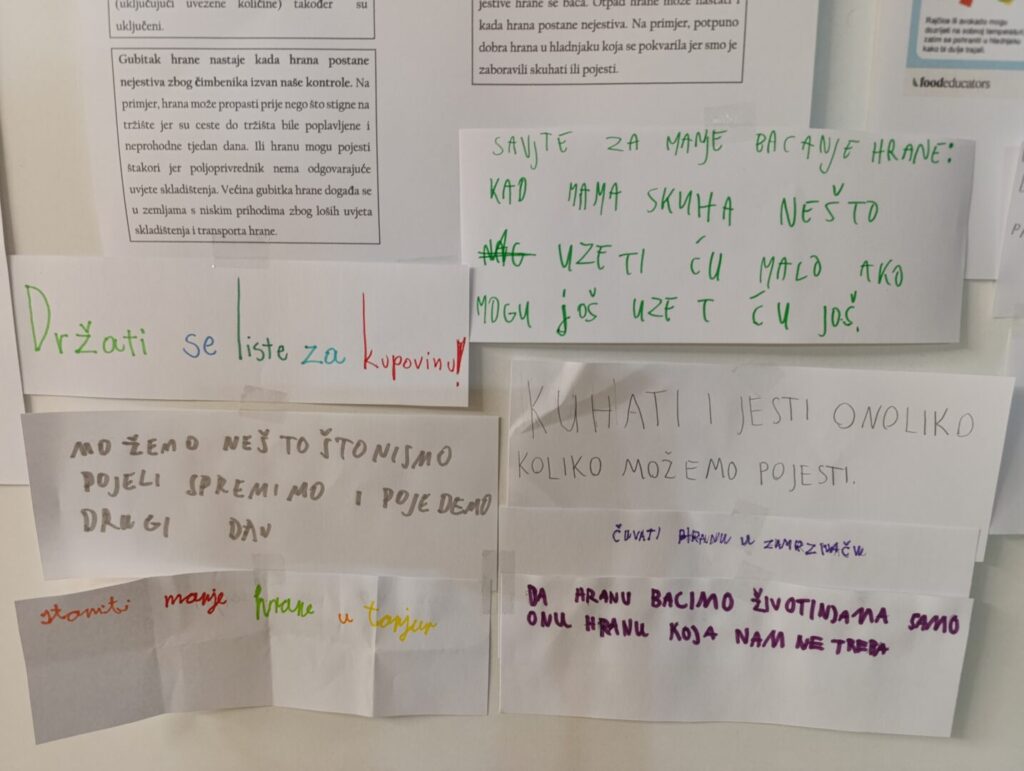 (uključujući uvezene količine) također su
uključeni.
Gubitak hrane nastaje kada hrana postane
nejestiva zbog čimbenika izvan naše kontrole. Na
primjer, hrana može propasti prije nego što stigne na
tržište jer su ceste do tržišta bile poplavljene i
neprohodne tjedan dana. Ili hranu mogu pojesti
štakori jer poljoprivrednik nema odgovarajuće
uvjete skladištenja. Većina gubitka hrane događa se
u zemljama s niskim prihodima zbog loših uvjeta
skladištenja i transporta hrane.
jestive hrane se baca. Otpad hrane može nastati i
kada hrana postane nejestiva. Na primjer, potpuno
dobra hrana u hladnjaku koja se pokvarila jer smo je
zaboravili skuhati ili pojesti.
Rajčice ili avokado mogu
dozrijeti na sobnoj temperaturi,
zatim se pohraniti u hladnjaku
kako bi dulje trajali.
foodeducators
SAVJTE ZA MANJE BACANJE HRANE:
KAD MAMA SKUHA NEŠTO
UZETI ĆU MALO AKO
MOGU još UZET ĆU JOŠ.
Držati se liste za kupovinu!
KUHATI I JESTI ONOLIKO
KOLIKO MOŽEMO POJESTI.
MOŽEMO NEŠTO ŠTO NISMO
POJELI SPREMIMO I POJEDEMO
DRUGI DAN
ČUVATI HRANU U ZAMRZIVAČU
stamiti manje hrane u tanjur
DA HRANU BACIMO ŽIVOTINJAMA SAMO
ONU HRANU KOJA NAM NE TREBA